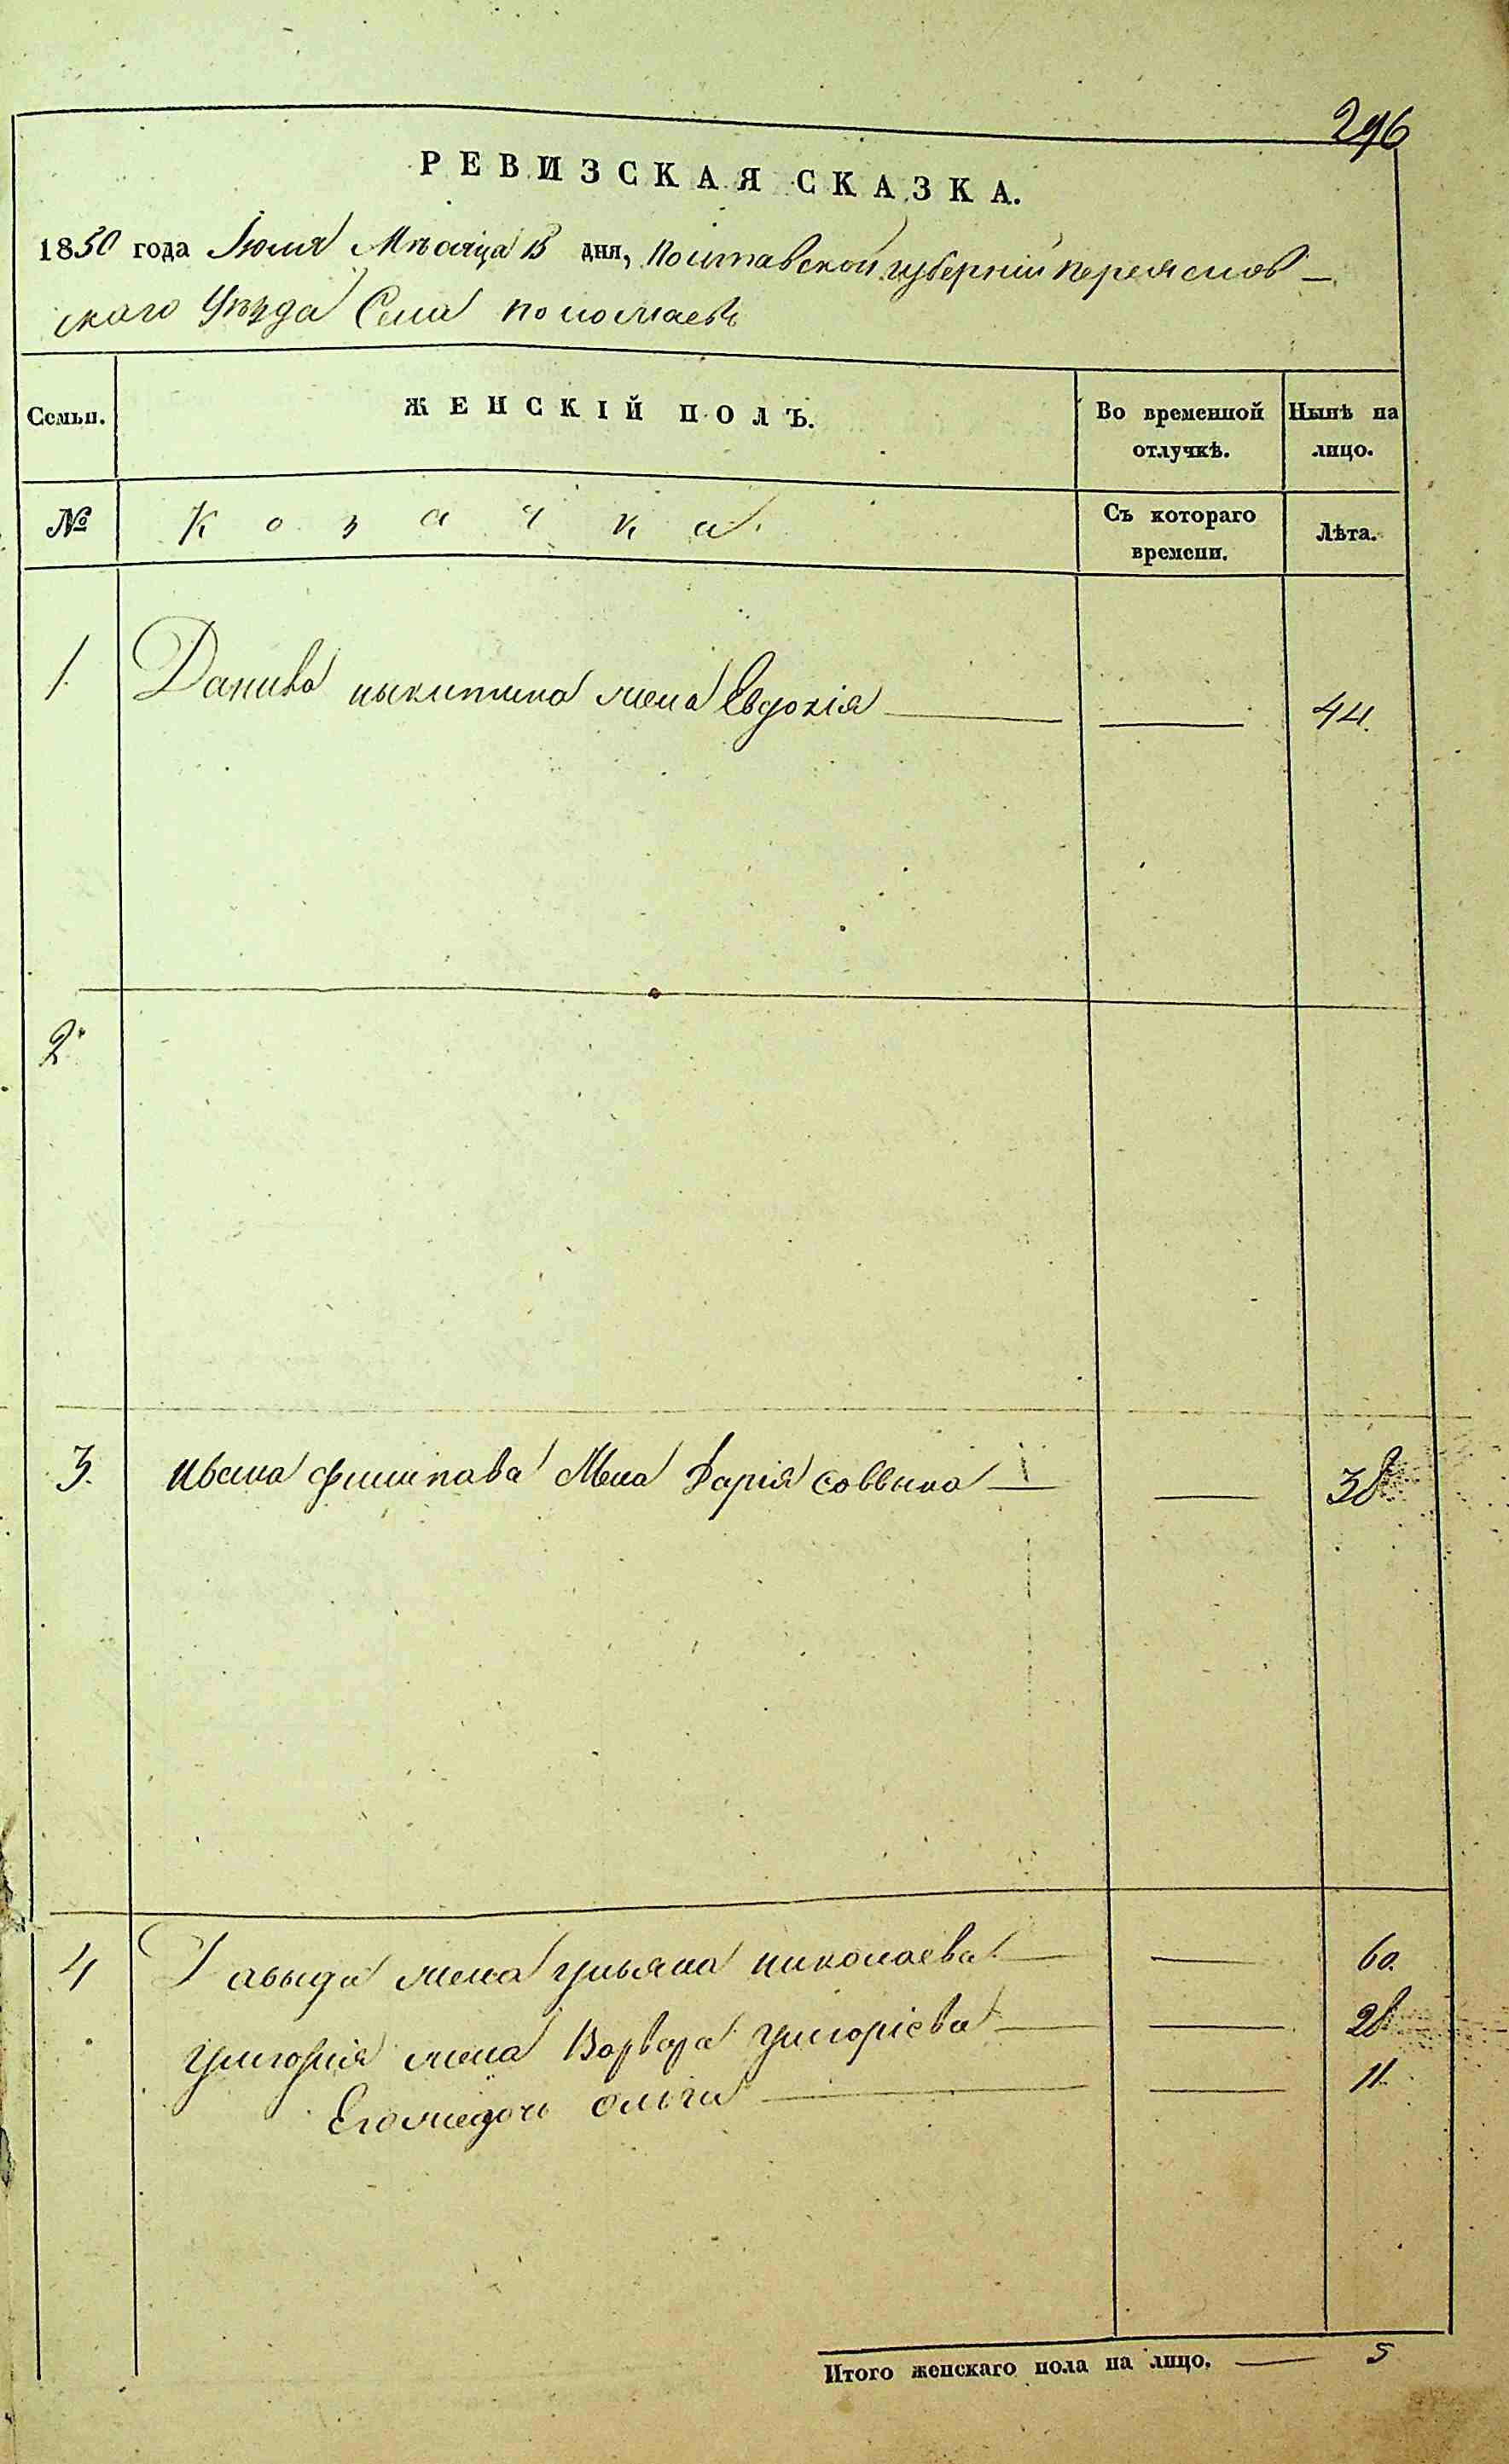 296
РЕВИЗСКАЯ СКАЗКА.
1850 года Июля Мѣсяца 15 дня, Полтавской губерніи Переяслов-
скаго Уѣзда Села
Семьи. ЖЕНСКІЙ ПОЛЪ. Во временной отлучкѣ. Нынѣ на лицо.
№ Козачка. Съ котораго времени. Лѣта.
1. Данила никитина жена Евдокія — — 44.
2.
3. Ивана филипава Жена Дарія соввина — — 38
4 Давыда жена ульяна николаева — — 60.
григорія жена Варвара григоріева — — 28
Его же дочь ольга — — 11.
Итого женскаго пола на лицо. — 5